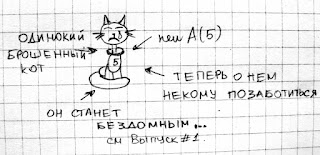 ОДИНОКИЙ
БРОШЕННЫЙ
КОТ
пеш А(5)
5
ТЕПЕРЬ О НЕМ
НЕКОМУ ПОЗАБОТИТЬСЯ
ОН СТАНЕТ
БЕЗДОМНЫМ...
СМ ВЫПУСК #1.